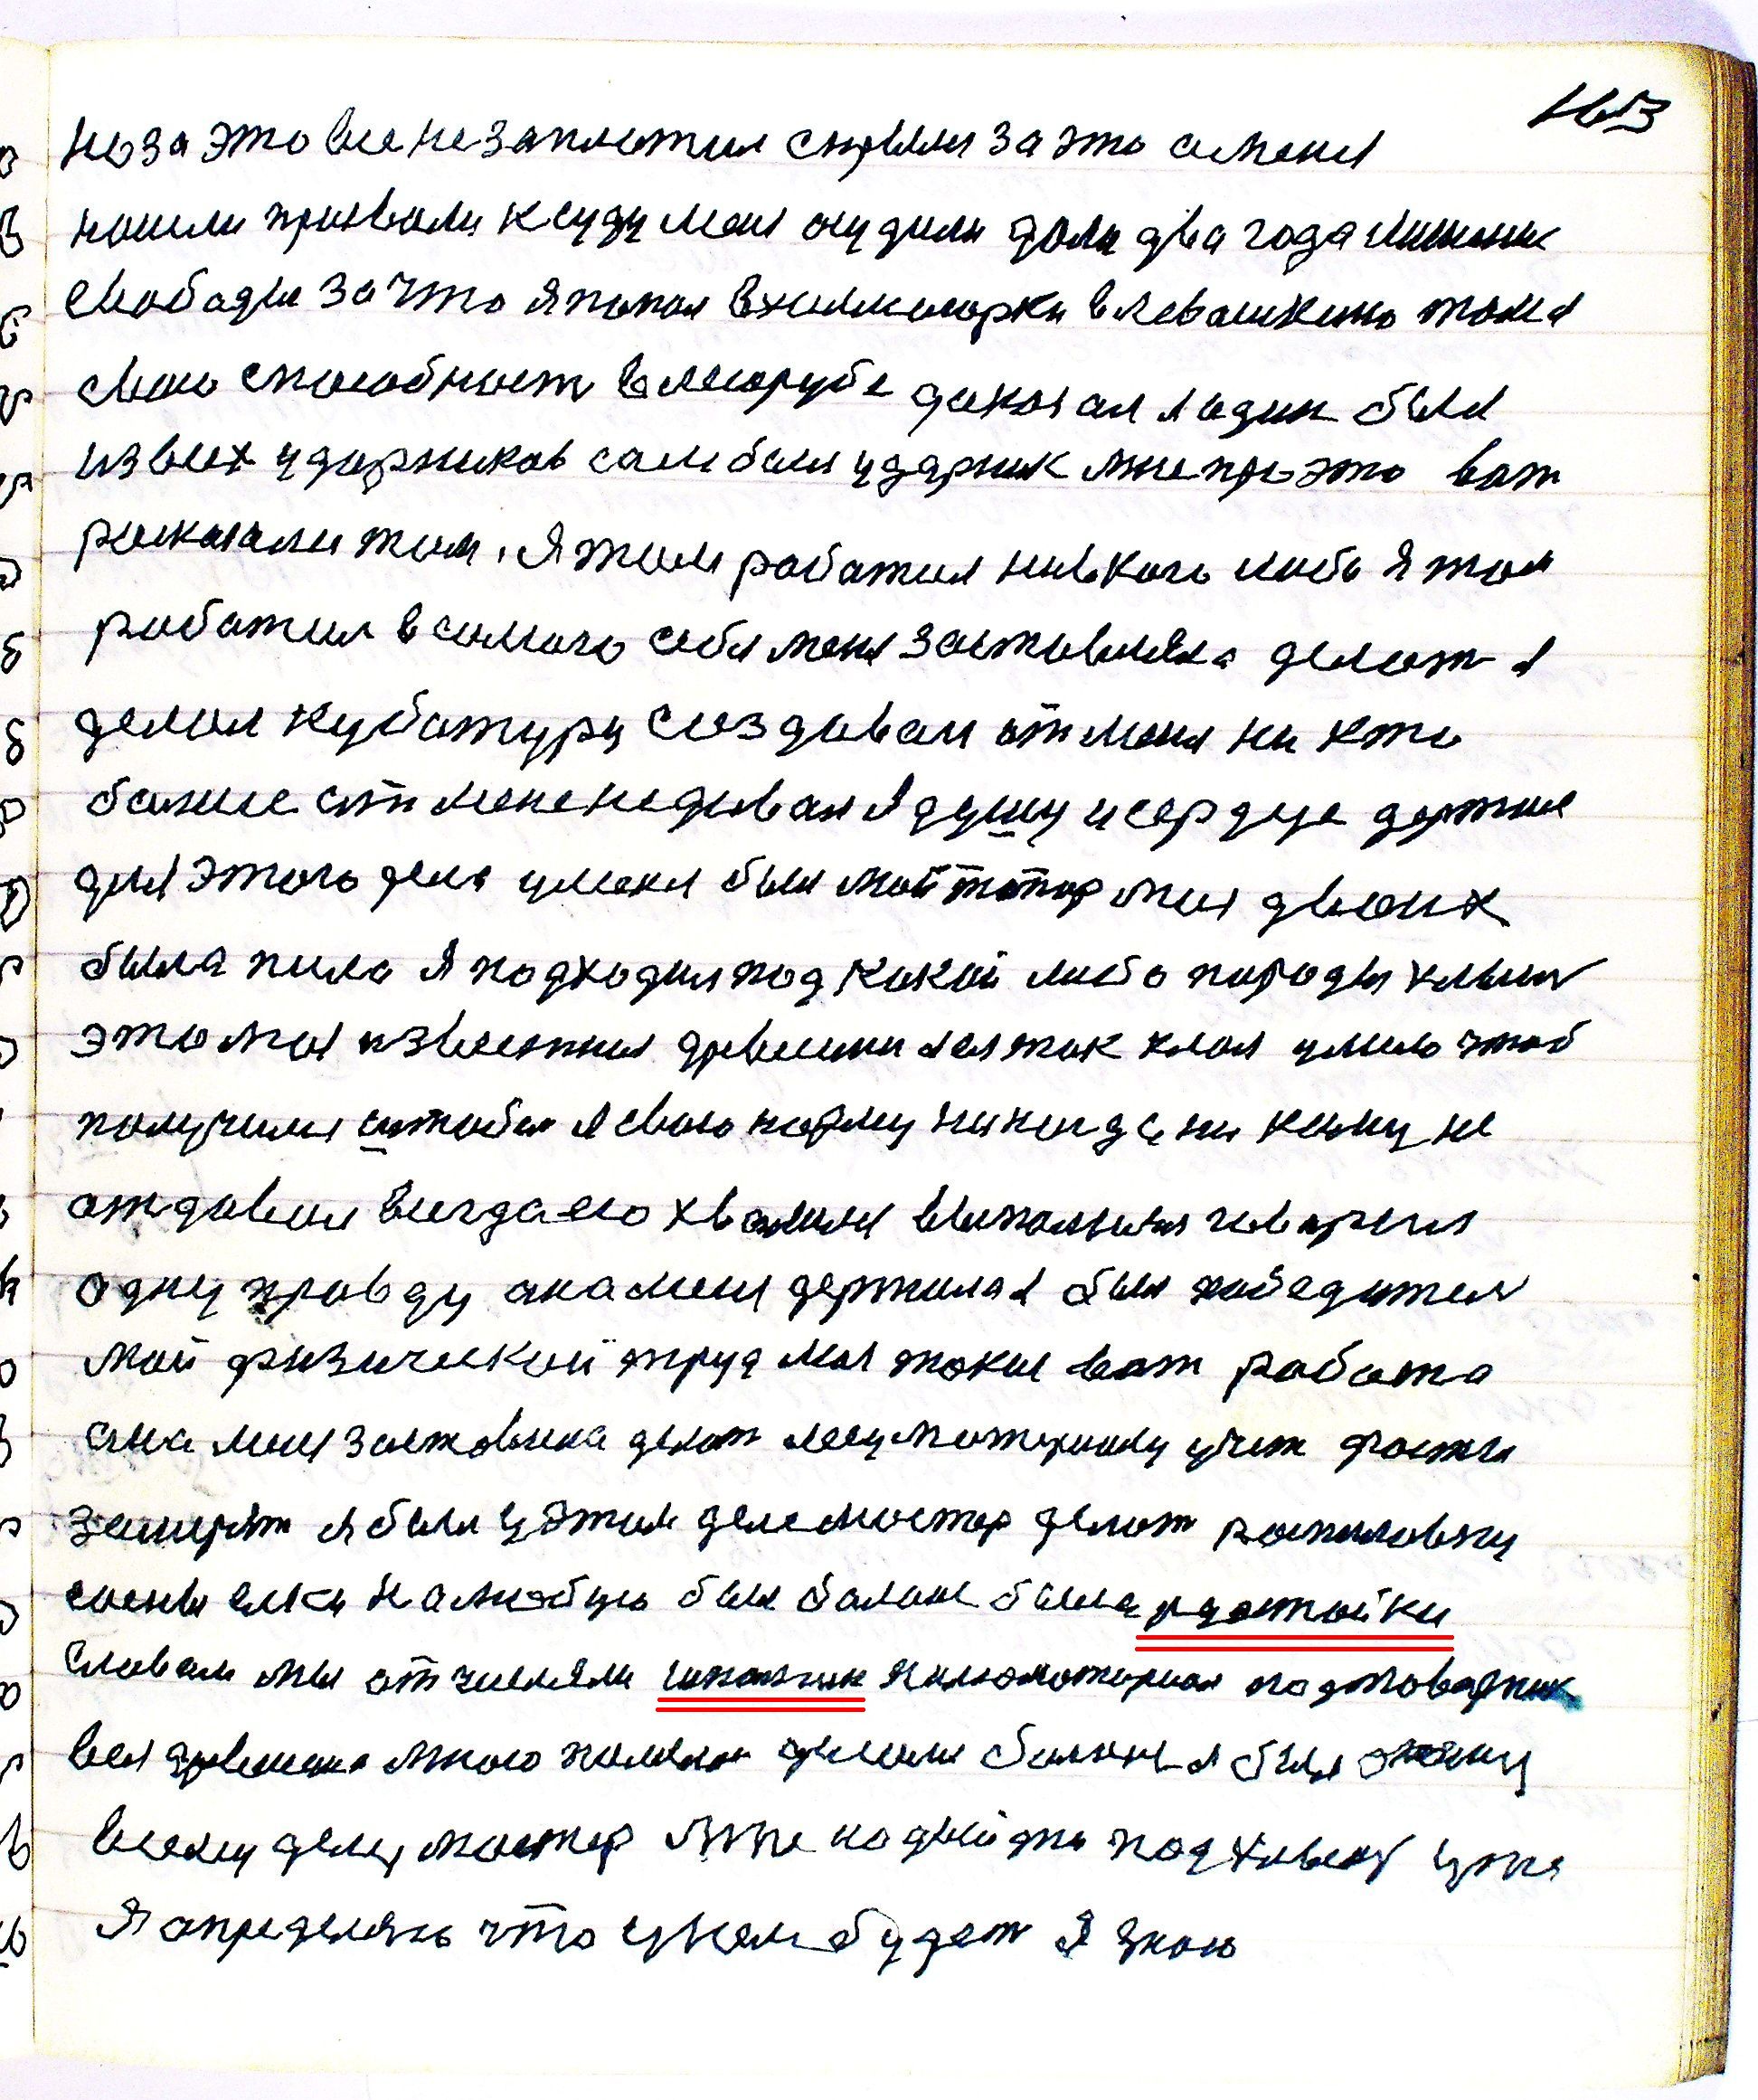 163
но за это все не заплотил скрылся за это а меня
нашли призвали к суду меня осудили дали два года лишения
свободы за что я попал в холмогорки в левашкино тоже я
свою способност в лесорубе доказал я один был
из всех ударников сам был ударник мне про это вот
росказали там, я там работал ни в кого либо я там
работал в самого себя меня заставляла делат я
делал кубатуру создавал от меня ни кто
болше от мене недивал я душу и сердце держал
для этого дела у меня был мой топор моя двоих
была пила я подходил под какой либо породы хлыст
это моя известная древесина я ея так клал умело чтоб
получился штабел я свою норму никогда ни кому не
отдавал всегда ею хвалился выполнял говорил
одну правду она меня держала я был победител
мой физический труд моя такая вот работа
она меня заставила делат лесу материалу учет
замерят я был у этом деле мастер делат роспиловку
сосны елки на любую был баланс была
словам мы отчисляли пиломатериал подтоварник
вся древесина много пилили дров болше я был этому
всему делу мастер мне подойти под хлыст уже
я определяю что у нем будет я знаю